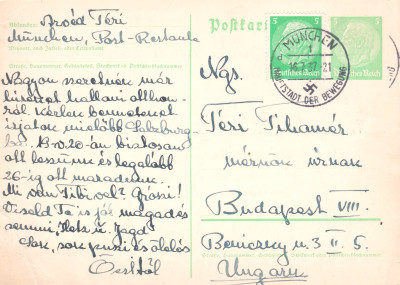 Absender: Árvéd Téri
München, Post-Restante
Wohnort, auch Zustell- oder Leitpostamt
Straße, Hausnummer, Gebäudeteil, Stockwerk od. Postschließfachnummer
Nagyon szeretnék már
híreket hallani otthon-
ról. Kérlek benneteket
írjatok mielőbb Salzburg-
ba. B. 20-án biztosan
ott leszünk és legalább
26-ig ott maradunk.
Mi van Tibivel? Grószi!
Viseld Te is jól magad és
semmi Hetz u. Jagd
Sok, sok puszi és ölelés
Öcsitől
Postkarte
MÜNCHEN
16.7.37.-21
HAUPTSTADT DER BEWEGUNG
5
5
Deutsches Reich
Deutsches Reich
Ngs.
Téri Tihamér
mérnök úrnak
Budapest VIII.
Beniczky u. 3 II. 5.
Straße, Hausnummer, Gebäudeteil, Stockwerk od. Postschließfachnummer
Ungarn